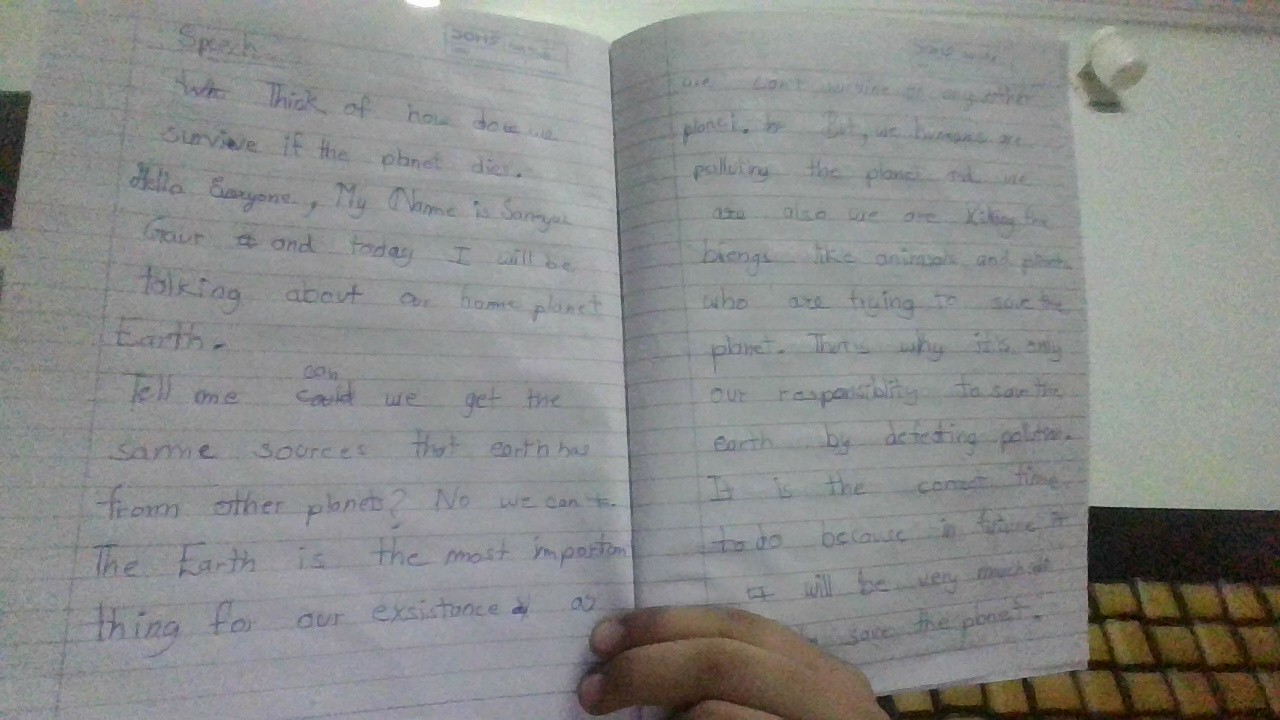 Speech
Thick of how dow we
survive if the planet dies.
Hello Everyone, My Name is
Gaur and today I will be
talking about our home planet
Earth.
can
Tell me could we get the
same sources that earth has
from other planets? No we can't.
The Earth is the most importan
thing for our exsistance as
we can't survive on any other
planet. But, we humans are
polluting the planet and we
are also we are killing the
biengs like animals and plants
who are trying to save the
planet. That's why it is only
our responsiblity to save the
earth by defecting polution.
It is the correct time
to do because in future it
It will be very much
save the planet.